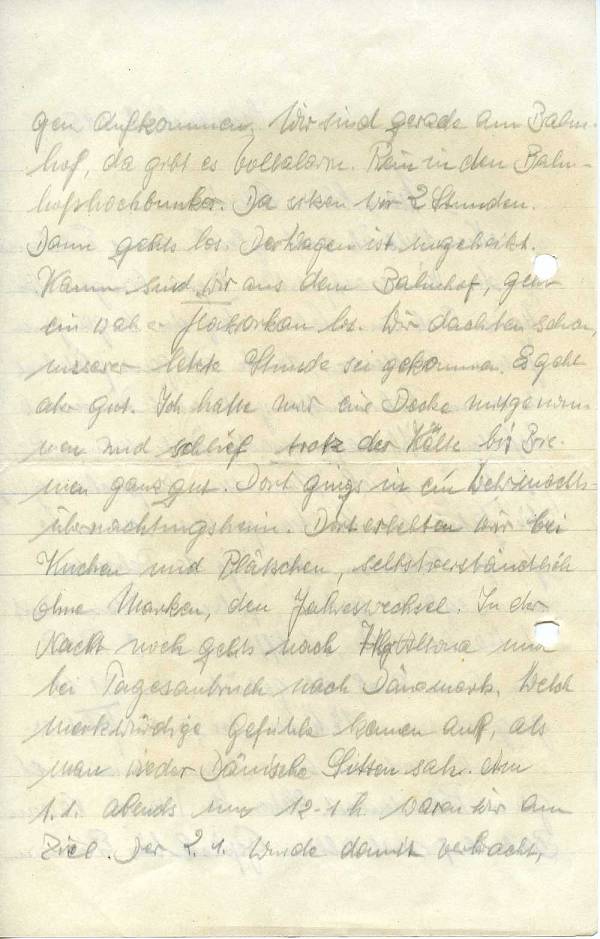 gen aufkommen. Wir sind gerade am Bahn-
hof, da gibt es Vollalarm. Rein in den Bahn-
hofshochbunker. Da sitzen wir 2 Stunden.
Dann gehts los. Der Wagen ist ungeheizt.
Kaum sind wir aus dem Bahnhof, geht
ein wahrer Flakorkan los. Wir dachten schon,
unserer letzte Stunde sei gekommen. Es geht
aber gut. Ich hatte mir eine Decke mitgenom-
men und schlief trotz der Kälte bis Bre-
men ganz gut. Dort gings in ein Wehrmachts-
übernachtungsheim. Dort erlebten wir bei
Kuchen und Plätzchen, selbstverständlich
ohne Marken, den Jahreswechsel. In der
Nacht noch gehts nach Altona und
bei Tagesanbruch nach Dänemark. Welch
merkwürdige Gefühle kamen auf, als
man wieder Dänische Sitten sah. Am
1.1. abends um 12-1 h waren wir am
Ziel. Der 2.1. wurde damit verbracht,